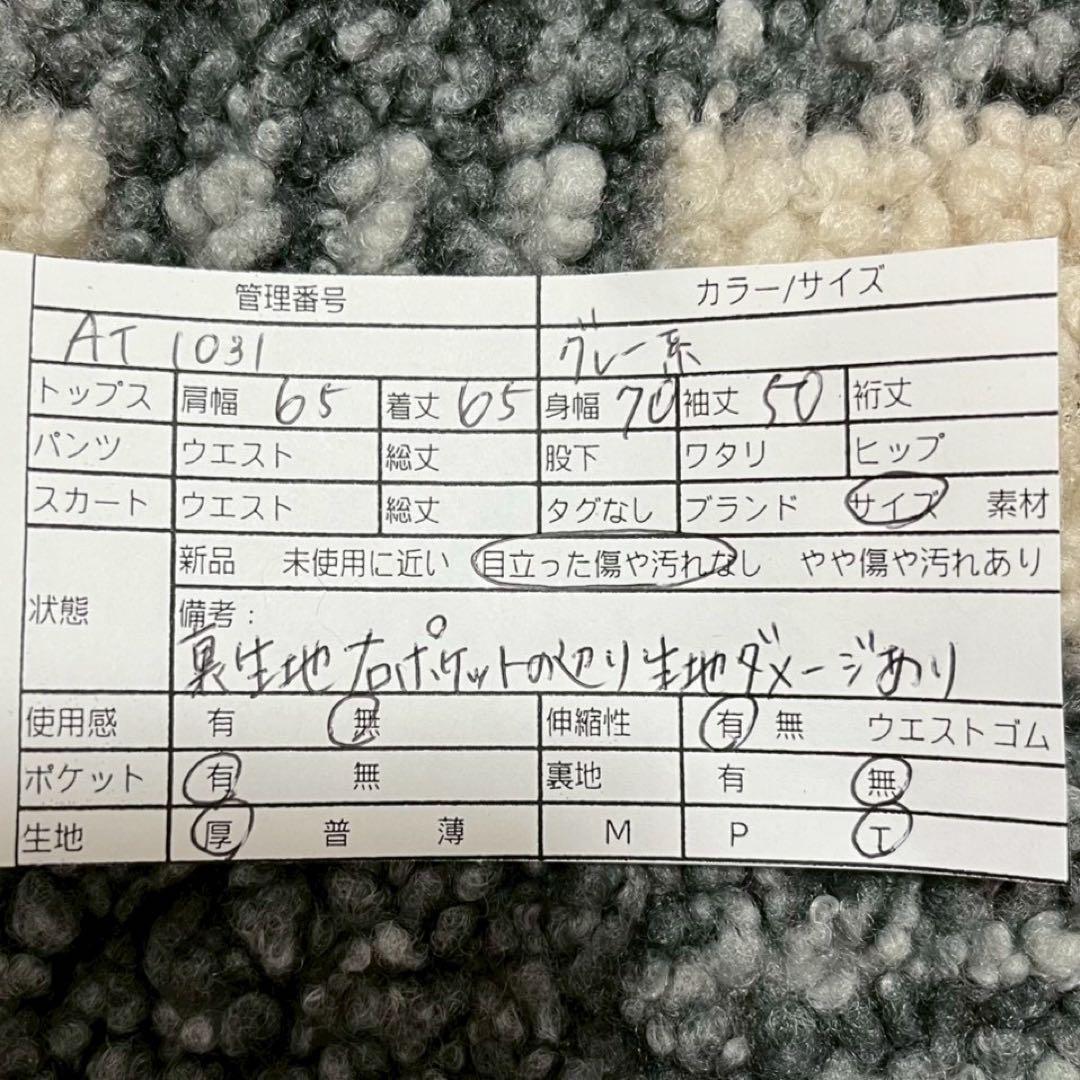 管理番号 カラー/サイズ
AT 1031 グレー系
トップス 肩幅 65 着丈 65 身幅 70 袖丈 50 裄丈
パンツ ウエスト 総丈 股下 ワタリ ヒップ
スカート ウエスト 総丈 タグなし ブランド サイズ 素材
状態 新品 未使用に近い 目立った傷や汚れなし やや傷や汚れあり
備考：
裏生地右ポケットの辺り生地ダメージあり
使用感 有 無 伸縮性 有 無 ウエストゴム
ポケット 有 無 裏地 有 無
生地 厚 普 薄 M P T